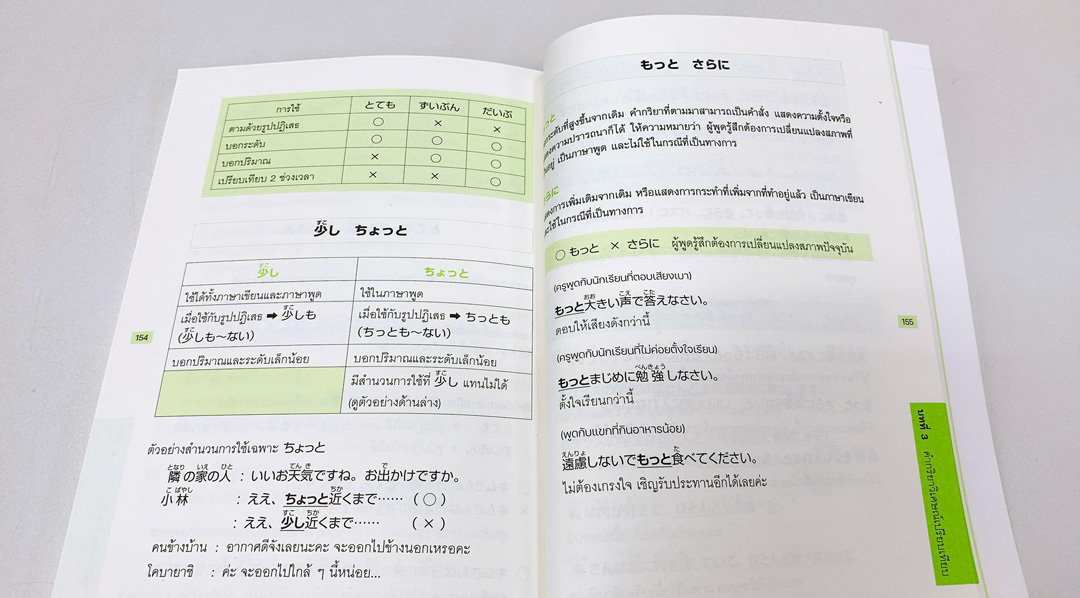 การใช้ とても ずいぶん だいぶ
ตามด้วยรูปปฏิเสธ ○ × ×
บอกระดับ ○ ○ ○
บอกปริมาณ × ○ ○
เปรียบเทียบ 2 ช่วงเวลา × × ○
少し ちょっと
少し ちょっと
ใช้ได้ทั้งภาษาเขียนและภาษาพูด ใช้ในภาษาพูด
เมื่อใช้กับรูปปฏิเสธ ➡ 少しも เมื่อใช้กับรูปปฏิเสธ ➡ ちっとも
(少しも〜ない) (ちっとも〜ない)
บอกปริมาณและระดับเล็กน้อย บอกปริมาณและระดับเล็กน้อย
มีสำนวนการใช้ที่ 少し แทนไม่ได้
(ดูตัวอย่างด้านล่าง)
ตัวอย่างสำนวนการใช้เฉพาะ ちょっと
隣の家の人 : いいお天気ですね。お出かけですか。
小林 : ええ、ちょっと近くまで…… (○)
: ええ、少し近くまで…… (×)
คนข้างบ้าน : อากาศดีจังเลยนะคะ จะออกไปข้างนอกเหรอคะ
โคบายาชิ : ค่ะ จะออกไปใกล้ ๆ นี้หน่อย...
154
もっと さらに
ระดับที่สูงขึ้นจากเดิม คำกริยาที่ตามมาสามารถเป็นคำสั่ง แสดงความตั้งใจหรือ
ความปรารถนาก็ได้ ให้ความหมายว่า ผู้พูดรู้สึกต้องการเปลี่ยนแปลงสภาพที่
อยู่ เป็นภาษาพูด และไม่ใช้ในกรณีที่เป็นทางการ
らに
การเพิ่มเติมจากเดิม หรือแสดงการกระทำที่เพิ่มจากที่ทำอยู่แล้ว เป็นภาษาเขียน
ใช้ในกรณีที่เป็นทางการ
○ もっと × さらに ผู้พูดรู้สึกต้องการเปลี่ยนแปลงสภาพปัจจุบัน
(ครูพูดกับนักเรียนที่ตอบเสียงเบา)
もっと大きい声で答えなさい。
ตอบให้เสียงดังกว่านี้
(ครูพูดกับนักเรียนที่ไม่ค่อยตั้งใจเรียน)
もっとまじめに勉強しなさい。
ตั้งใจเรียนกว่านี้
(พูดกับแขกที่กินอาหารน้อย)
遠慮しないでもっと食べてください。
ไม่ต้องเกรงใจ เชิญรับประทานอีกได้เลยค่ะ
155
บทที่ 3 คำกริยาวิเศษณ์เปรียบเทียบ